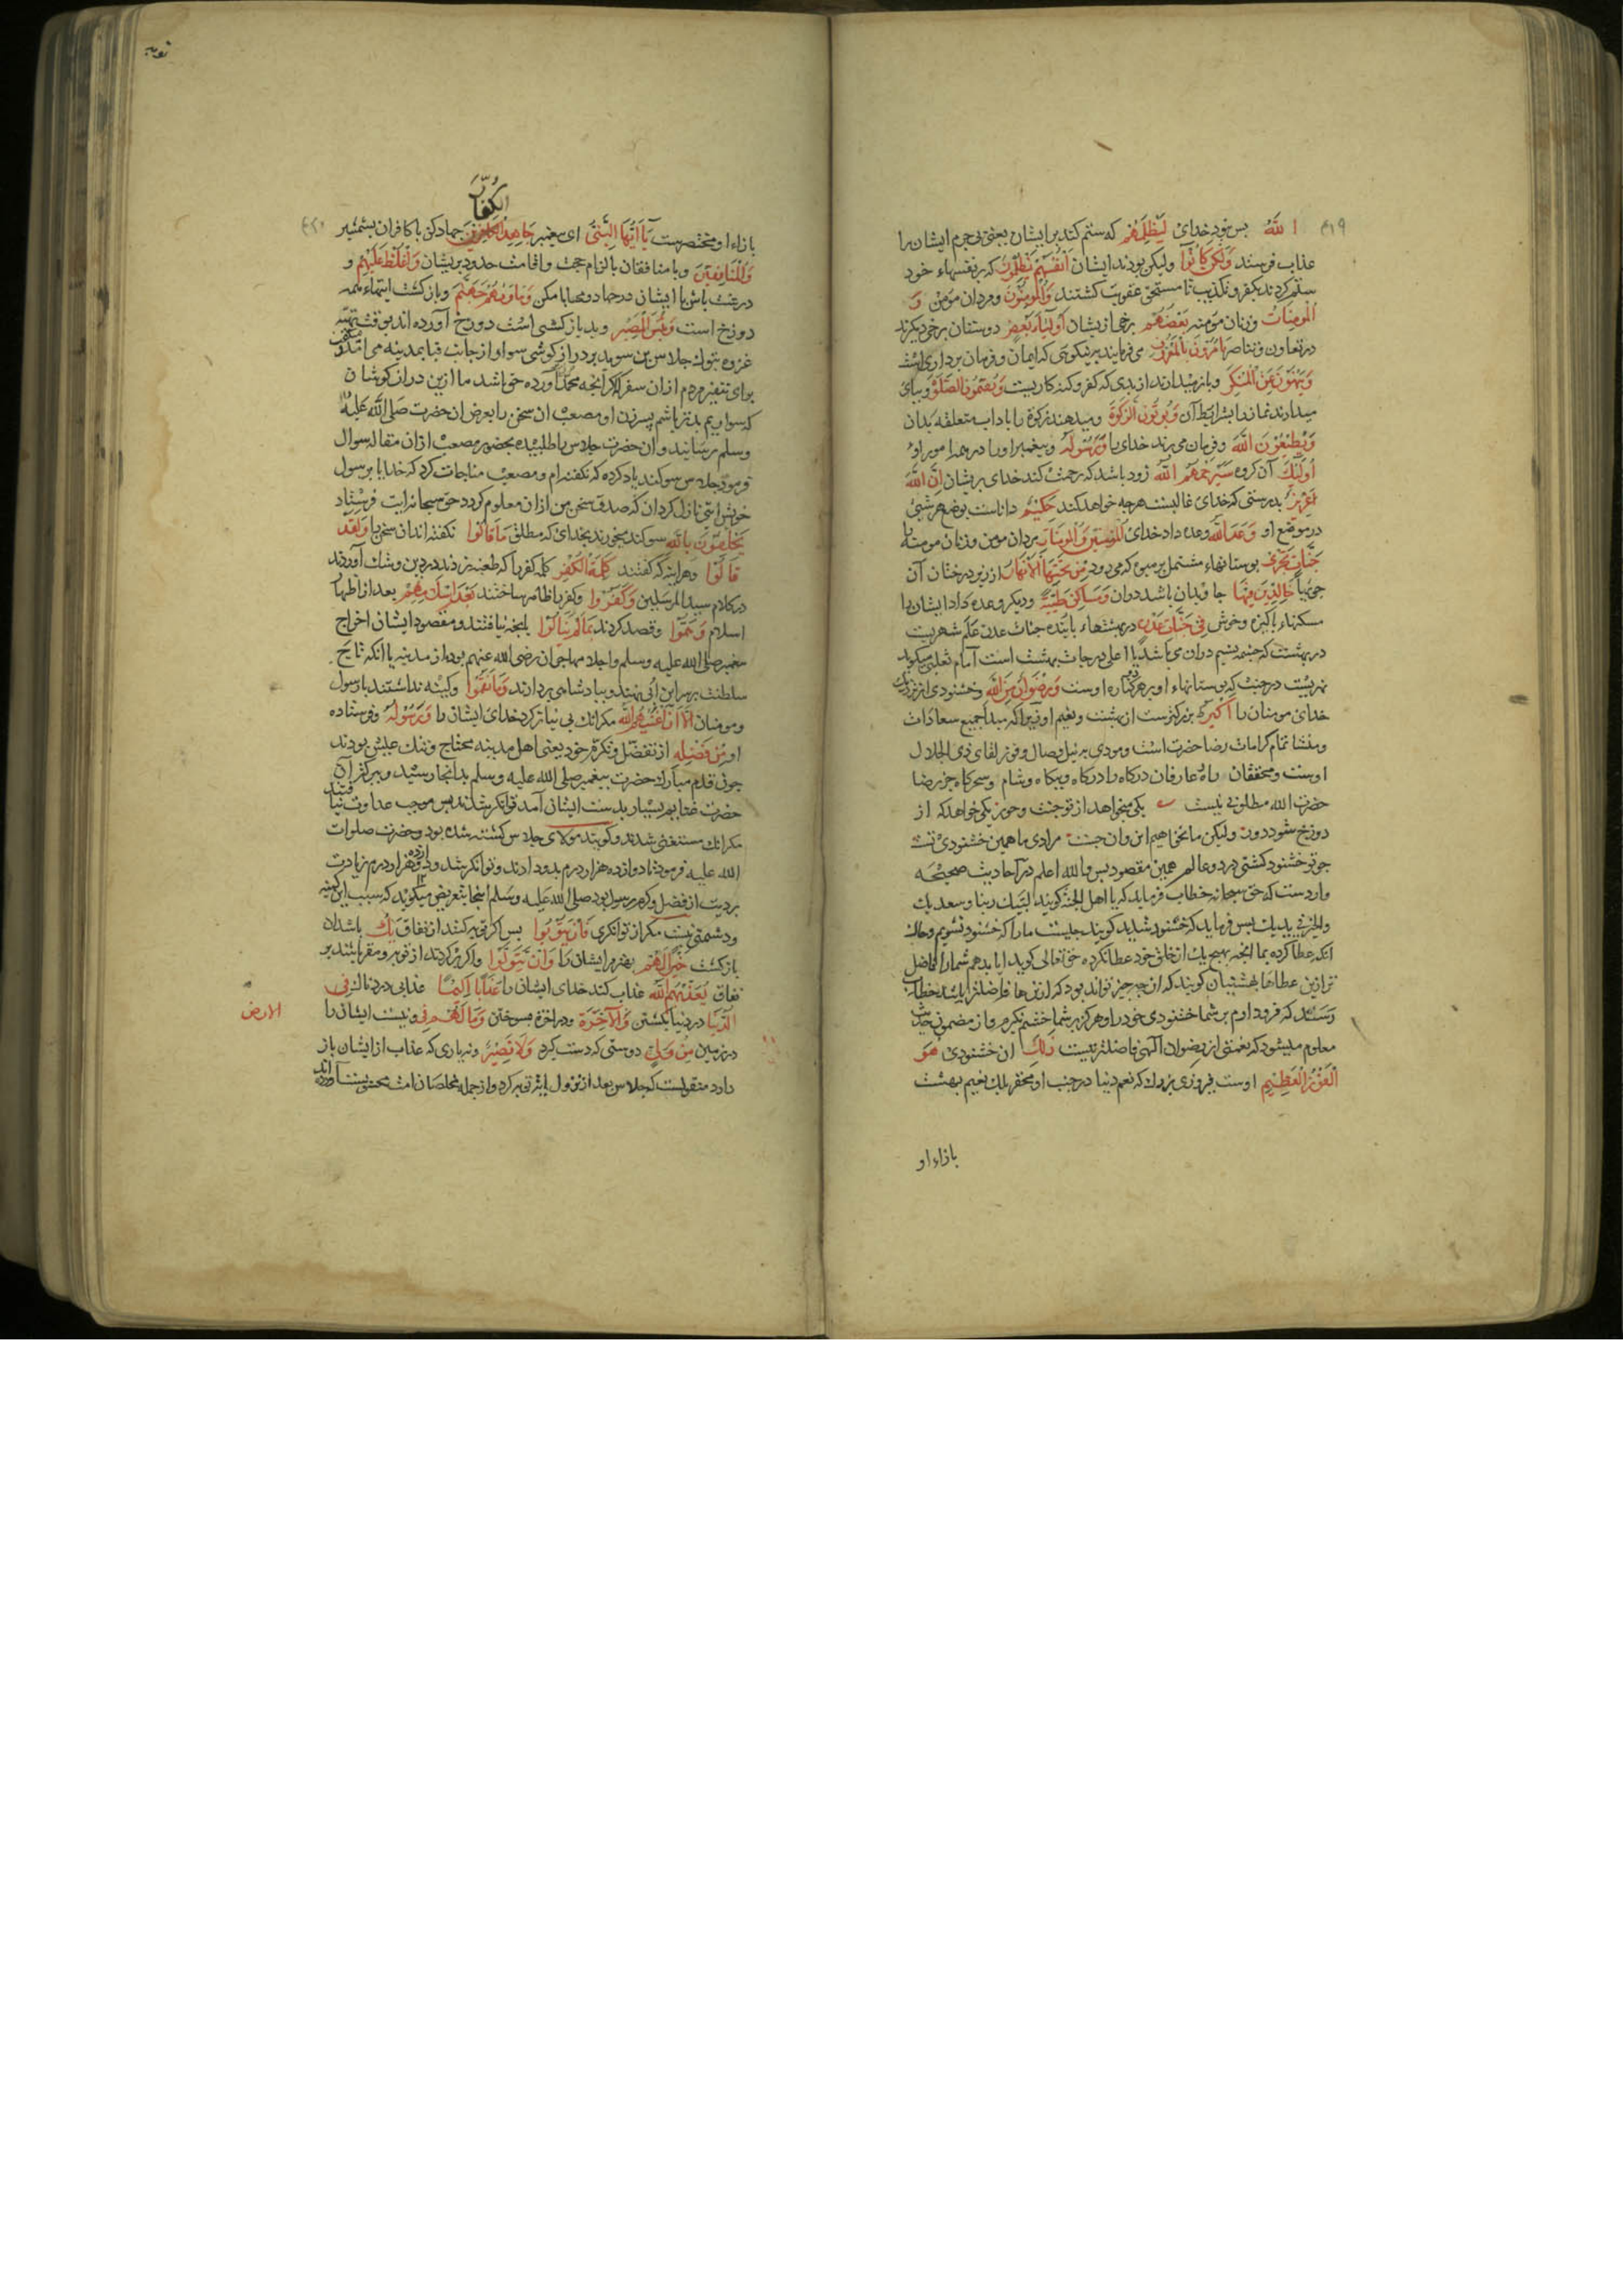 ٤١٩
الله بس نبود خدای لیظلمهم که ستم کند بر ایشان یعنی بی جرم ایشان را
عذاب فرستد ولکن کانوا ولیکن بودند ایشان انفسهم یظلمون که بر نفسهاء خود
ستم کردند بکفر و تکذیب تا مستحق عقوبت کشتند والمومنون ومردان مومن و
المومنات وزنان مومنه بعضهم برخی از یشان اولیاء بعض دوستان برخی دیکرند
در تعاون و تناصر یامرون بالمعروف می فرمایند بر نیکویی که ایمان و فرمان برداری است
وینهون عن المنکر و باز میدارند از بدی که کفر و کنه کاریست ویقیمون الصلوة و بپای
میدارند نماز را بشرایط آن ویوتون الزکوة ومیدهند زکوة را باداب متعلقه بدان
ویطیعون الله وفرمان می برند خدای را ورسوله وپیغمبر او را در همه امور او
اولیک آن کروه سیرحمهم الله زود باشد که رحمت کند خدای بر یشان ان الله
عزیز بدرستی که خدای غالبست هرجه خواهد کند حکیم داناست بوضع هر شیئ
در موضع او وعد الله وعده داد خدای المومنین والمومنات مردان مومن وزنان مومنه را
جنات تجری بوستانهاء مشتمل بر میوه که می رود من تحتها الانهار از زیر درختان آن
جویها خالدین فیها جاویدان باشند در ان ومساکن طیبة ودیکر وعده داد ایشان را
مسکنهاء پاکیزه وخوش فی جنات عدن در بهشتهاء پاینده جنات عدن علم شهریست
در بهشت که جشمه تسنیم در ان می باشد یا اعلی درجات بهشت است امام ثعلبی میکوید
نهریست در جنت که بوستانهاء او بر هر دو کناره اوست ورضوان من الله وخشنودی از نزدیک
خدای مومنان را اکبر بزرکترست از بهشت ونعیم او زیرا که مبدا جمیع سعادات
ومنشا تمام کرامات رضا حضرت است ومودی به نیل وصال وفوز لقای ذی الجلال
اوست ومحققان راه عارفان درکاه را درکاه وبیکاه وشام وسحرکاه جز رضا
حضرت الله مطلوبی نیست یکی میخواهد از تو جنت وحور یکی خواهد که از
دوزخ شود دور ولیکن ما نخواهیم این وان جست مرادی ما همین خشنودی تست
جو تو خشنود کشتی در دو عالم همین مقصود بس والله اعلم در احادیث صحیحه
واردست که حق سبحانه خطاب فرماید که یا اهل الجنه کویند لبیک ربنا وسعدیک
والخیر فی یدیک بس فرماید که خشنود شدید کویند جیست ما را که خشنود نشویم وحال
انکه عطا کرده بما انجه بهیچ یک از خلق خود عطا نکرده حق تعالی کوید ایا بدهم شما را فاضل
تر ازین عطاها بهشتیان کویند که ان جه جیز تواند بود که ازینها فاضلتر باشد خطاب
رسد که فرود ارم بر شما خشنودی خود را وهرکز بر شما خشم نکیرم واز مضمون حدیث
معلوم میشود که نعمتی از رضوان الهی فاضلتر نیست ذلک ان خشنودی هو
الفوز العظیم اوست فیروزی بزرک که نعیم دنیا در جنب او محقر بلک نعیم بهشت
بازاء او
توبه
الکفار
٤٢٠
بازاء او مختصرست یا ایها النبی ای پیغمبر جاهد الکافرین جهاد کن با کافران بشمشیر
والمنافقین وبا منافقان بالزام حجت واقامت حدود بریشان واغلظ علیهم و
درشت باش با ایشان در جهاد ومحابا مکن وماویهم جهنم وباز کشت ایشان همه
دوزخ است وبئس المصیر وبد باز کشتی است دوزخ آورده اند بوقت تهیه
غزوه تبوک جلاس بن سوید بر دراز کوشی سوار از جانب قبا بمدینه می امد
برای تنفیر مردم از ان سفر اکر انجه محمد آورده حق باشد ما ازین دراز کوشان
که سواریم بدتر باشیم پسر زن او مصعب ان سخن را بعرض ان حضرت صلی الله علیه
وسلم رسانید وان حضرت جلاس را طلبیده بحضور مصعب از ان مقاله سوال
فرمود جلاس سوکند یاد کرده که نکفته ام ومصعب مناجات کرد که خدایا بر رسول
خویش ایتی نازل کردان که صدق سخن من از ان معلوم کردد حق سبحانه ایت فرستاد
یحلفون بالله سوکند میخورند بخدای که مطلق ما قالوا نکفته اند ان سخن را ولقد
قالوا وهراینه که کفتند کلمة الکفر کلمه کفر را که طعنه زدند در دین وشک آوردند
در کلام سید المرسلین وکفروا وکفر را ظاهر ساختند بعد اسلامهم بعد از اظهار
اسلام وهموا وقصد کردند بما لم ینالوا بانجه نیافتند ومقصود ایشان اخراج
پیغمبر صلی الله علیه وسلم واجلاء مهاجران رضی الله عنهم بود از مدینه یا انکه تاج
سلطنت بر سر ابن ابی نهند وپادشاهی بردارند وما نقموا وکینه نداشتند با رسول
ومومنان الا ان اغنیهم الله مکر انک بی نیاز کرد خدای ایشان را ورسوله وفرستاده
او من فضله از تفضل وتکرم خود یعنی اهل مدینه محتاج وتنک عیش بودند
جون قدم مبارک حضرت پیغمبر صلی الله علیه وسلم بدانجا رسید وببرکت آن
حضرت غنایم بسیار بدست ایشان آمد توانکر شدند بس موجب عداوت نیافتند
مکر انک مستغنی شدند وکویند مولای جلاس کشته شده بود وحضرت صلوات
الله علیه فرمود تا دوازده هزار درم بدو دادند وتوانکر شد ودوازده هزار درم زیادت
بر دیت از فضل وکرم رسول بود صلی الله علیه وسلم اینجا تعریض میکوید که سبب این کینه
ودشمنی نیست مکر از توانکری فان یتوبوا بس اکر توبه کنند از نفاق یک باشد ان
باز کشت خیرا لهم بهتر مر ایشان را وان یتولوا واکر برکردند از توبه ومقر باشند بر
نفاق یعذبهم الله عذاب کند خدای ایشان را عذابا الیما عذابی دردناک فی
الدنیا در دنیا بکشتن والآخرة ودر اخرة بسوختن وما لهم فی ونیست ایشان را
الارض
در زمین من ولی دوستی که دست کیرد ولا نصیر ونه یاری که عذاب از ایشان باز
دارد منقولست که جلاس بعد از نزول ایت توبه کرد واز جمله مخلصان امت